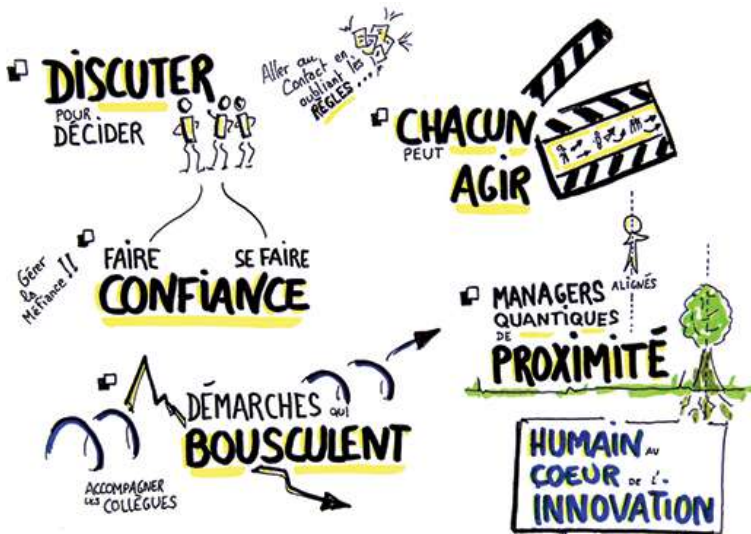 DISCUTER
POUR
DÉCIDER
Aller au
Contact en
oubliant les
RÈGLES...
CHACUN
PEUT
AGIR
Gérer
la
Méfiance !!
FAIRE SE FAIRE
CONFIANCE
ALIGNÉS
MANAGERS
QUANTIQUES
DE
PROXIMITÉ
DÉMARCHES QUI
BOUSCULENT
ACCOMPAGNER
LES COLLÈGUES
HUMAIN AU
COEUR DE L'
INNOVATION